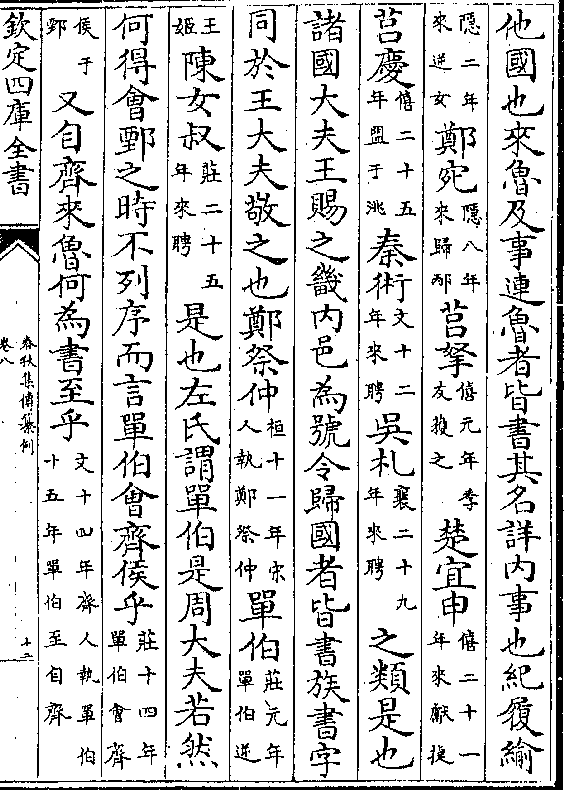 他國也來魯及事連魯者皆書其名詳内事也紀履緰
隱二年來逆女鄭宛隱八年來歸邴莒挐僖元年季友獲之楚宜申僖二十一年來獻捷
莒慶僖二十五年盟于洮秦術文十二年來聘吳札襄二十九年來聘之類是也
諸國大夫王賜之畿内邑為號令歸國者皆書族書字
同於王大夫敬之也鄭祭仲桓十一年宋人執鄭祭仲單伯莊元年單伯逆
王姬陳女叔莊二十五年來聘是也左氏謂單伯是周大夫若然
何得會鄄之時不列序而言單伯會齊侯乎莊十四年單伯會齊
侯于鄄又自齊來魯何為書至乎文十四年齊人執單伯十五年單伯至自齊
欽定四庫全書
春秋集傳纂例
卷八
十二